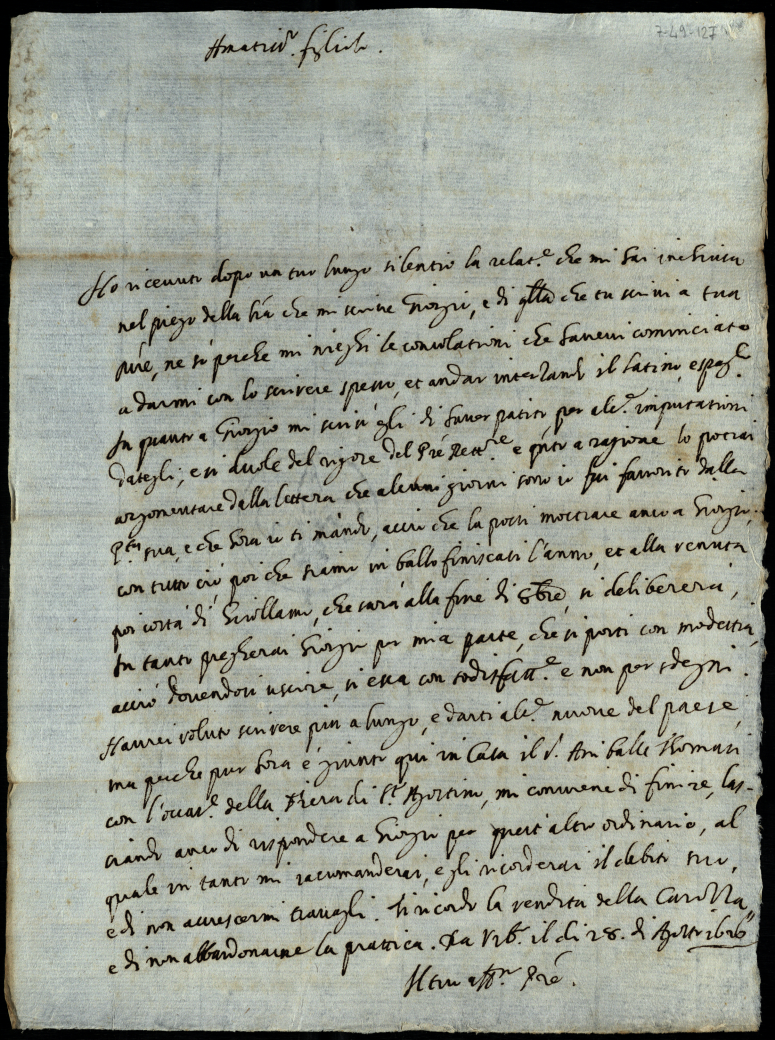 7-49-127
Amatiss.º figliolo.
Ho ricevuto dopo un tuo lungo silentio la relat.e che mi hai inchiusa
nel piego della lr̃a che mi scrive Giorgio, e di qlla che tu scrivi a tua
mr̃e, ne sò perche mi nieghi le consolationi che havevi cominciato
a darmi con lo scrivere spesso, et andar interzando il latino, e spag.lo
In quanto a Giorgio mi scriv' egli di haver patito per alc.e imputationi
dategli, e si duole del rigore del Prẽ Rett.re e qñto a ragione lo potrai
argomentare dalla lettera che alcuni giorni sono io fui favorito dalla
P.tà sua, e che hora io ti mando, acciò che la possi mostrare anco a Giorgio,
con tutto ciò poi che siamo in ballo finiscasi l'anno, et alla venuta
poi costà di Girollamo, che sarà alla fine di 8bre, si delibererà,
In tanto pregherai Giorgio per mia parte, che si porti con modestia,
acciò dovendosi uscire, si esca con sodisfatt.e e non per sdegni.
Haurei voluto scrivere più a lungo, e darti alc.e nuove del paese,
ma perche pur hora è giunto qui in Casa il S. Aniballe Thomasi
con l'occas.e della Fiera di S.to Agostino, mi conviene di finire, las-
ciando anco di rispondere a Giorgio per quest'altro ordinario, al
quale in tanto mi racomanderai, e gli ricorderai il debito suo,
e di non accrescermi travagli. Ti ricordo la vendita della Carozza,
e di non abbandonarne la prattica. Da Urb.º il di 28. di Agosto 1626
Il tuo aff.mo Prẽ.